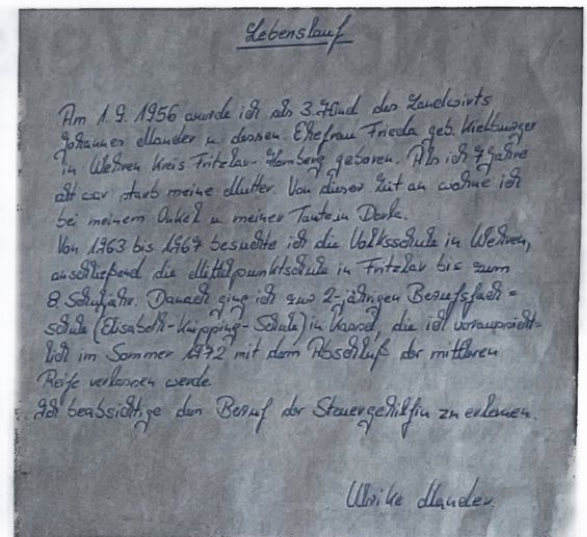 Lebenslauf
Am 1.9.1956 wurde ich als 3. Kind des Landwirts
Johannes Mander u. dessen Ehefrau Frieda geb. Kielburger
in Wehren Kreis Fritzlar-Homberg geboren. Als ich 7 Jahre
alt war starb meine Mutter. Von dieser Zeit an wohne ich
bei meinem Onkel u. meiner Tante in Dorla.
Von 1963 bis 1967 besuchte ich die Volksschule in Wehren,
anschließend die Mittelpunktschule in Fritzlar bis zum
8. Schuljahr. Danach ging ich zur 2-jährigen Berufsfach=
schule (Elisabeth-Knipping-Schule) in Kassel, die ich voraussicht=
lich im Sommer 1972 mit dem Abschluß der mittleren
Reife verlassen werde
Ich beabsichtige den Beruf der Steuergehilfin zu erlernen.
Ulrike Mander